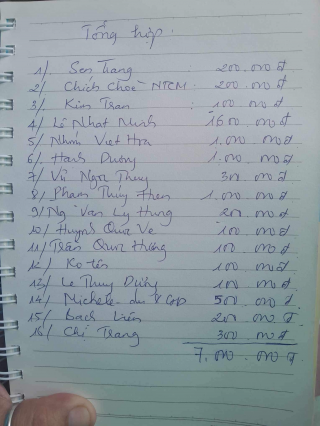 Tổng hợp:
1/ Sen Trang : 200.000 đ
2/ Chích Choè NTCM : 200.000 đ
3/ Kim Tran : 100 000 đ
4/ Lê Nhat Minh 1600 000 đ
5/ Nhóm Việt Hoa 1.000 000 đ
6/ Hanh Dương 1.000 000 đ
7/ Vũ Ngọc Thuy 300 000 đ
8/ Pham Thúy 1.000 000 đ
9/ Ng Van Ly Hung 200 000 đ
10/ Huỳnh Qua Ve 100 000 đ
11/ Trần Quới Hương 100 000 đ
12/ Ko tên 100 000 đ
13/ Le Thuy Dương 100 000 đ
14/ Michele 500 000 đ
15/ bach Liên 200 000 đ
16/ Chi Trang 300 000 đ
7.000.000 đ